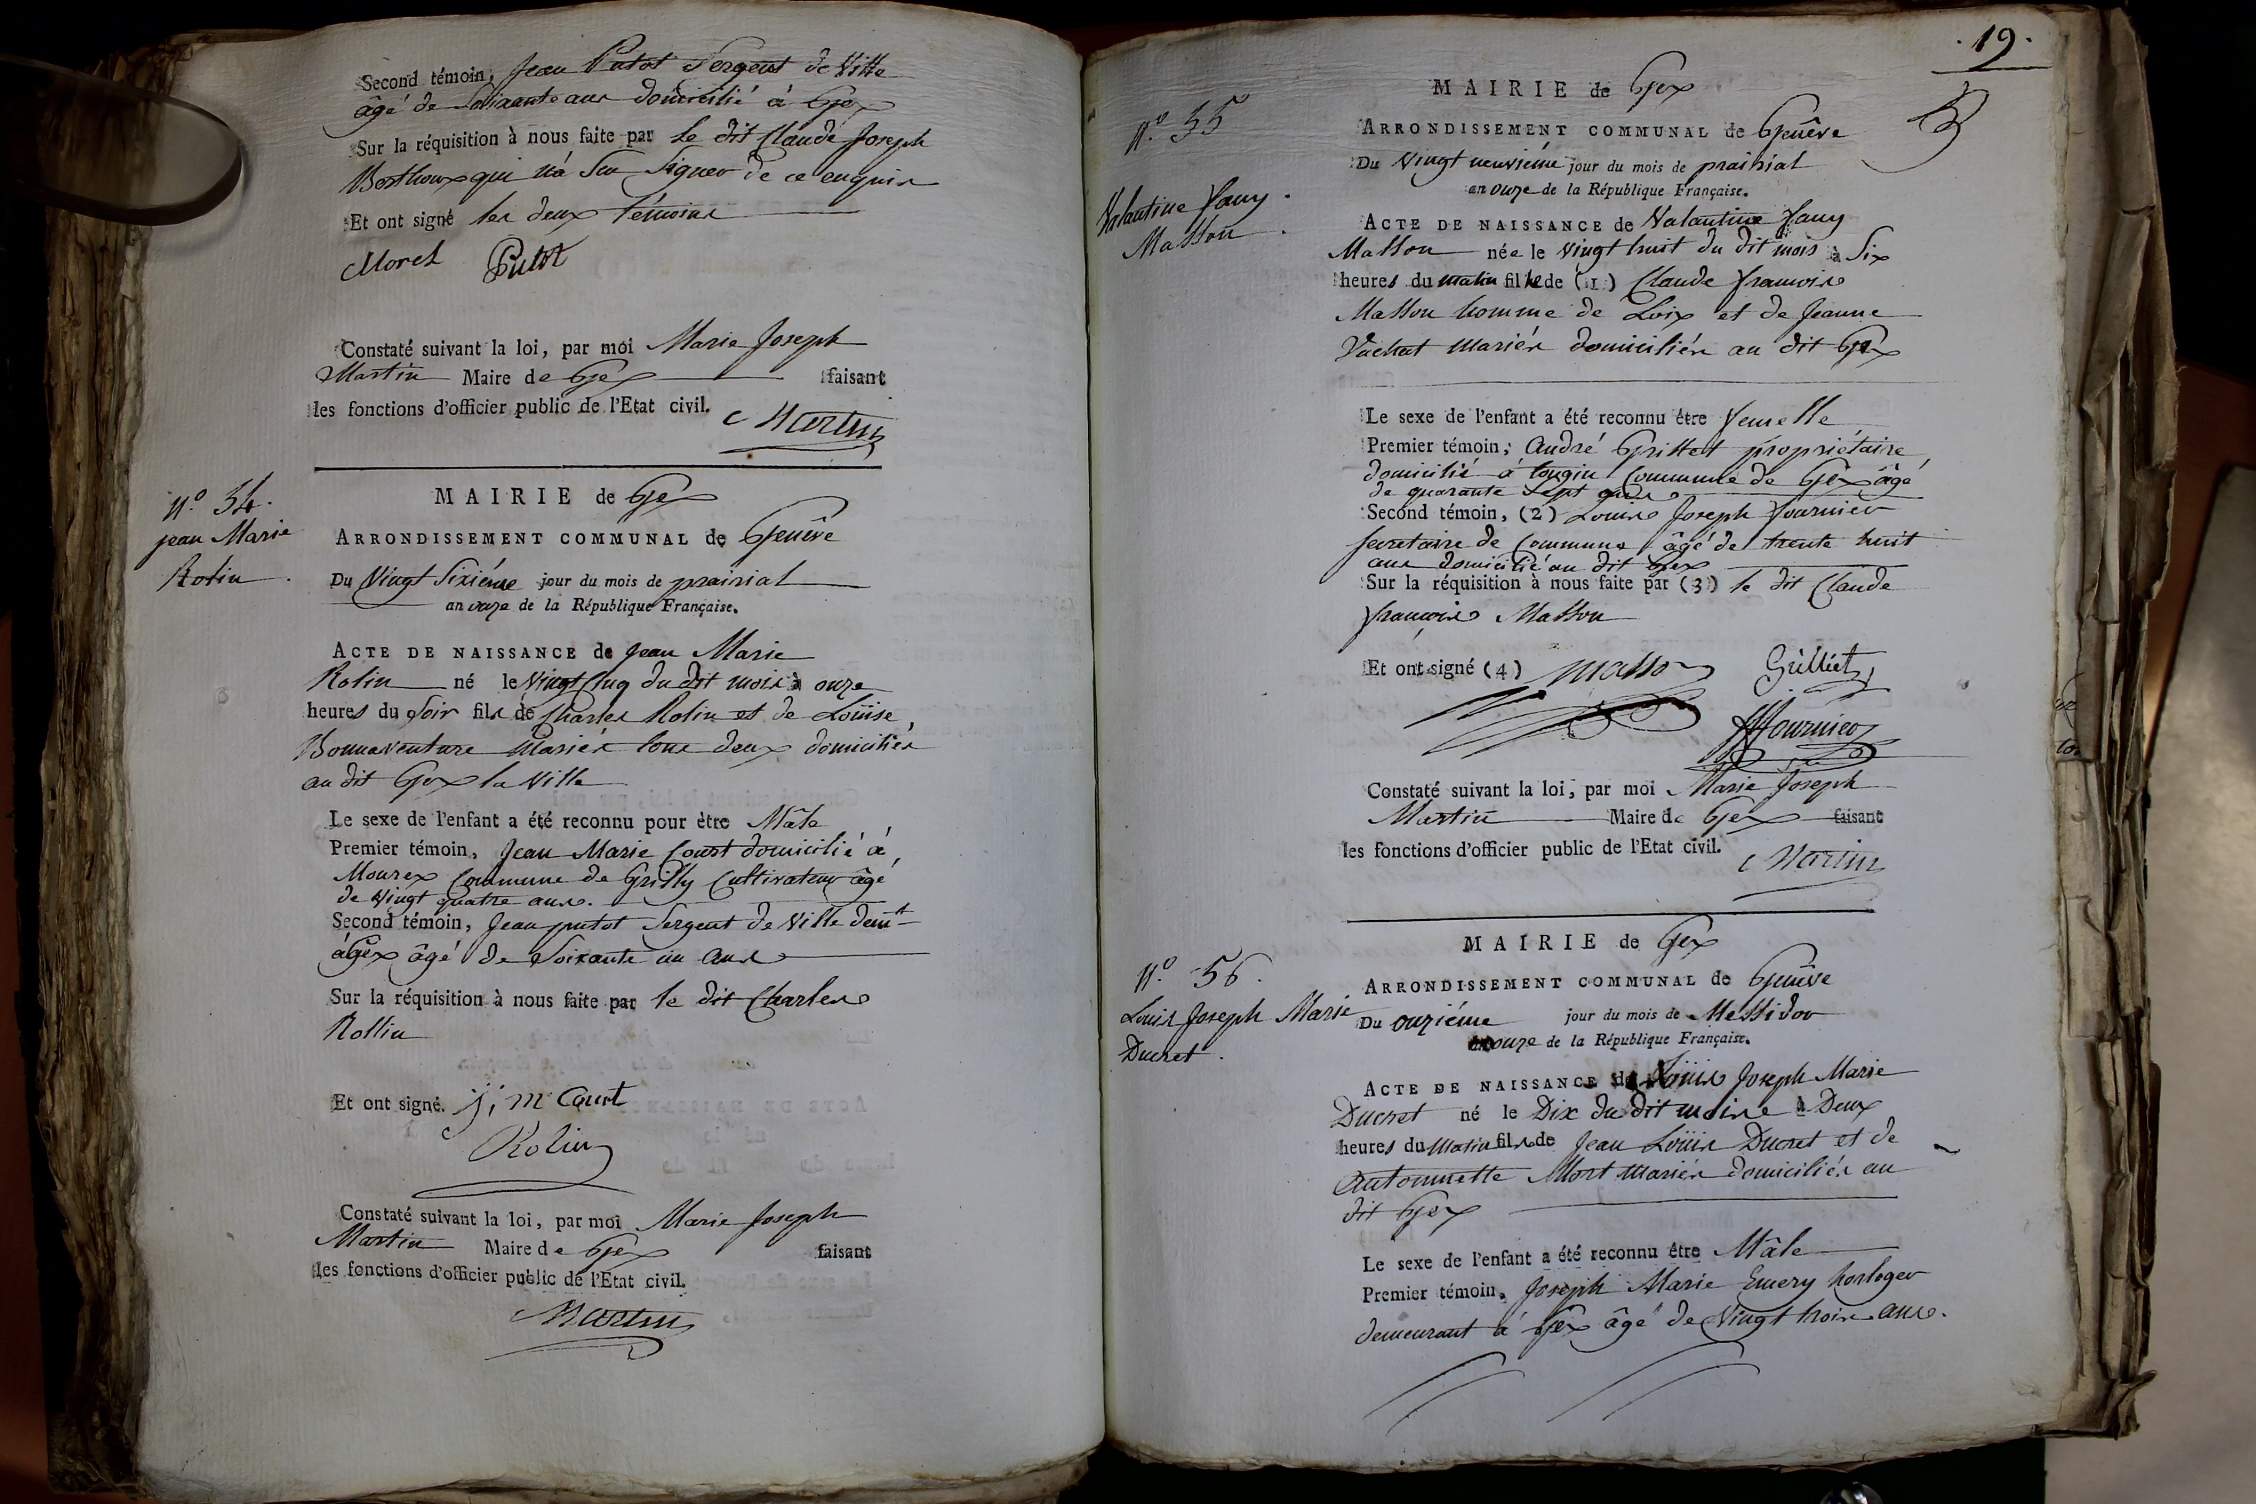 Second témoin, Jean Putot Sergent de Ville
âgé de Soixante ans domicilié à Gex
Sur la réquisition à nous faite par le dit Claude Joseph
Berthoux qui n'a Su Signer de ce enquis
Et ont signé les deux témoins
Moret Putot
Constaté suivant la loi, par moi Marie Joseph
Martin Maire de Gex faisant
les fonctions d'officier public de l'Etat civil.
Martin
N.º 54.
jean Marie
Rolin.
MAIRIE de Gex
ARRONDISSEMENT COMMUNAL de Genêve
Du Vingt Sixiéme jour du mois de prairial
an onze de la République Française.
ACTE DE NAISSANCE de Jean Marie
Rolin né le Vingt Cinq du dit mois à onze
heures du Soir fils de Charles Rolin et de Loüise
Bonnaventure Mariés tous deux domiciliés
au dit Gex la Ville
Le sexe de l'enfant a été reconnu pour être Mâle
Premier témoin, Jean Marie Court domicilié à
Mourex Commune de Grilly Cultivateur âgé
de Vingt quatre ans.
Second témoin, Jean putot Sergent de Ville demt
à Gex âgé de Soixante un ans
Sur la réquisition à nous faite par le dit Charles
Rollin
Et ont signé. j, m Court
Rolin
Constaté suivant la loi, par moi Marie Joseph
Martin Maire de Gex faisant
les fonctions d'officier public de l'Etat civil.
Martin
. 19 .
N.º 55
Valantine fany
Masson.
MAIRIE de Gex
ARRONDISSEMENT COMMUNAL de Genêve
Du Vingt neuviéme jour du mois de prairial
an onze de la République Française.
ACTE DE NAISSANCE de Valantine fany
Masson née le Vingt huit du dit mois à Six
heures du matin fille de (1) Claude francois
Masson homme de Loix et de Jeanne
Vachat Mariés domiciliés au dit Gex
Le sexe de l'enfant a été reconnu être femelle
Premier témoin, André Grillet propriétaire
domicilié à tougin Commune de Gex âgé
de quarante Sept ans
Second témoin, (2) Louis Joseph fournier
Secretaire de Commune âgé de trente huit
ans domicilié au dit Gex
Sur la réquisition à nous faite par (3) le dit Claude
francois Masson
Et ont signé (4) Masson Grilliet
Fournier
Constaté suivant la loi, par moi Marie Joseph
Martin Maire de Gex faisant
les fonctions d'officier public de l'Etat civil.
Martin
N.º 56.
Louis Joseph Marie
Ducret.
MAIRIE de Gex
ARRONDISSEMENT COMMUNAL de Genêve
Du onziéme jour du mois de Messidor
an onze de la République Française.
ACTE DE NAISSANCE de Loüis Joseph Marie
Ducret né le Dix du dit moins à Deux
heures du Matin fils de Jean Loüis Ducret et de
Antonnette Mort Mariés domiciliés au
dit Gex
Le sexe de l'enfant a été reconnu être Mâle
Premier témoin, Joseph Marie Emery horloger
demeurant à Gex âgé de Vingt trois ans.